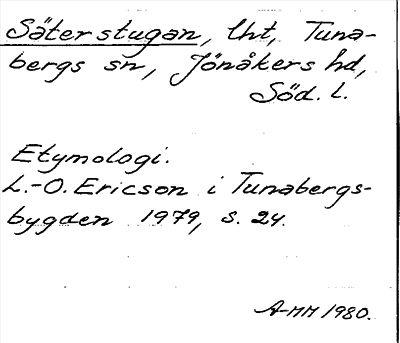 Säterstugan, lht, Tuna-
bergs sn, Jönåkers hd,
Söd. l.
Etymologi.
L.-O. Ericson i Tunabergs-
bygden 1979, s. 24.
A-MM 1980.